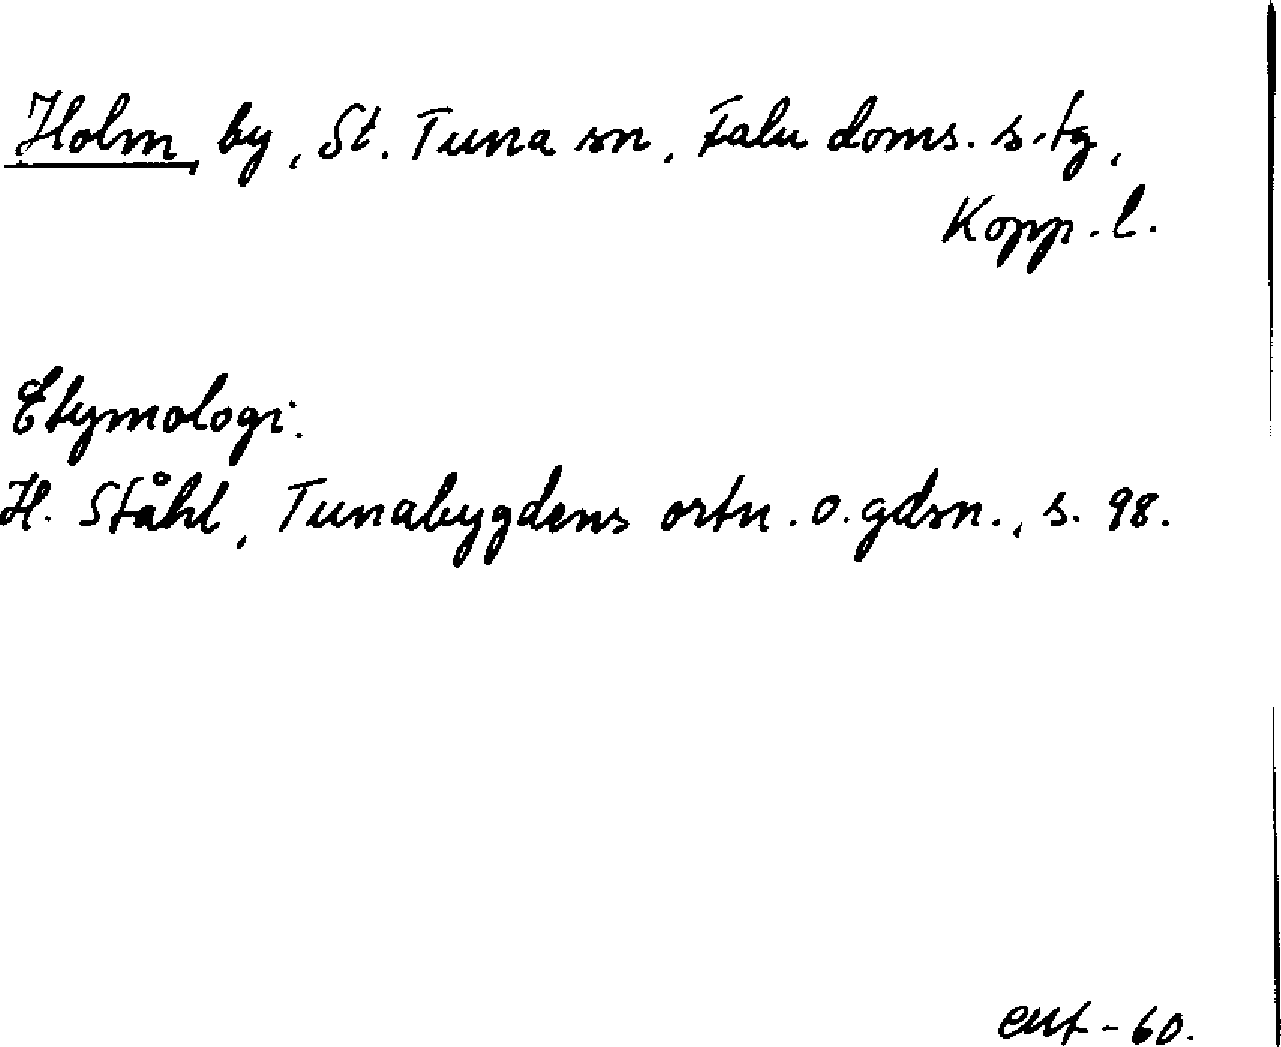 Holm, by, St. Tuna sn, Falu doms. s. tg,
Kopp. l.
Etymologi:
H. Ståhl, Tunabygdens ortn. o. gdsn., s. 98.
-60.